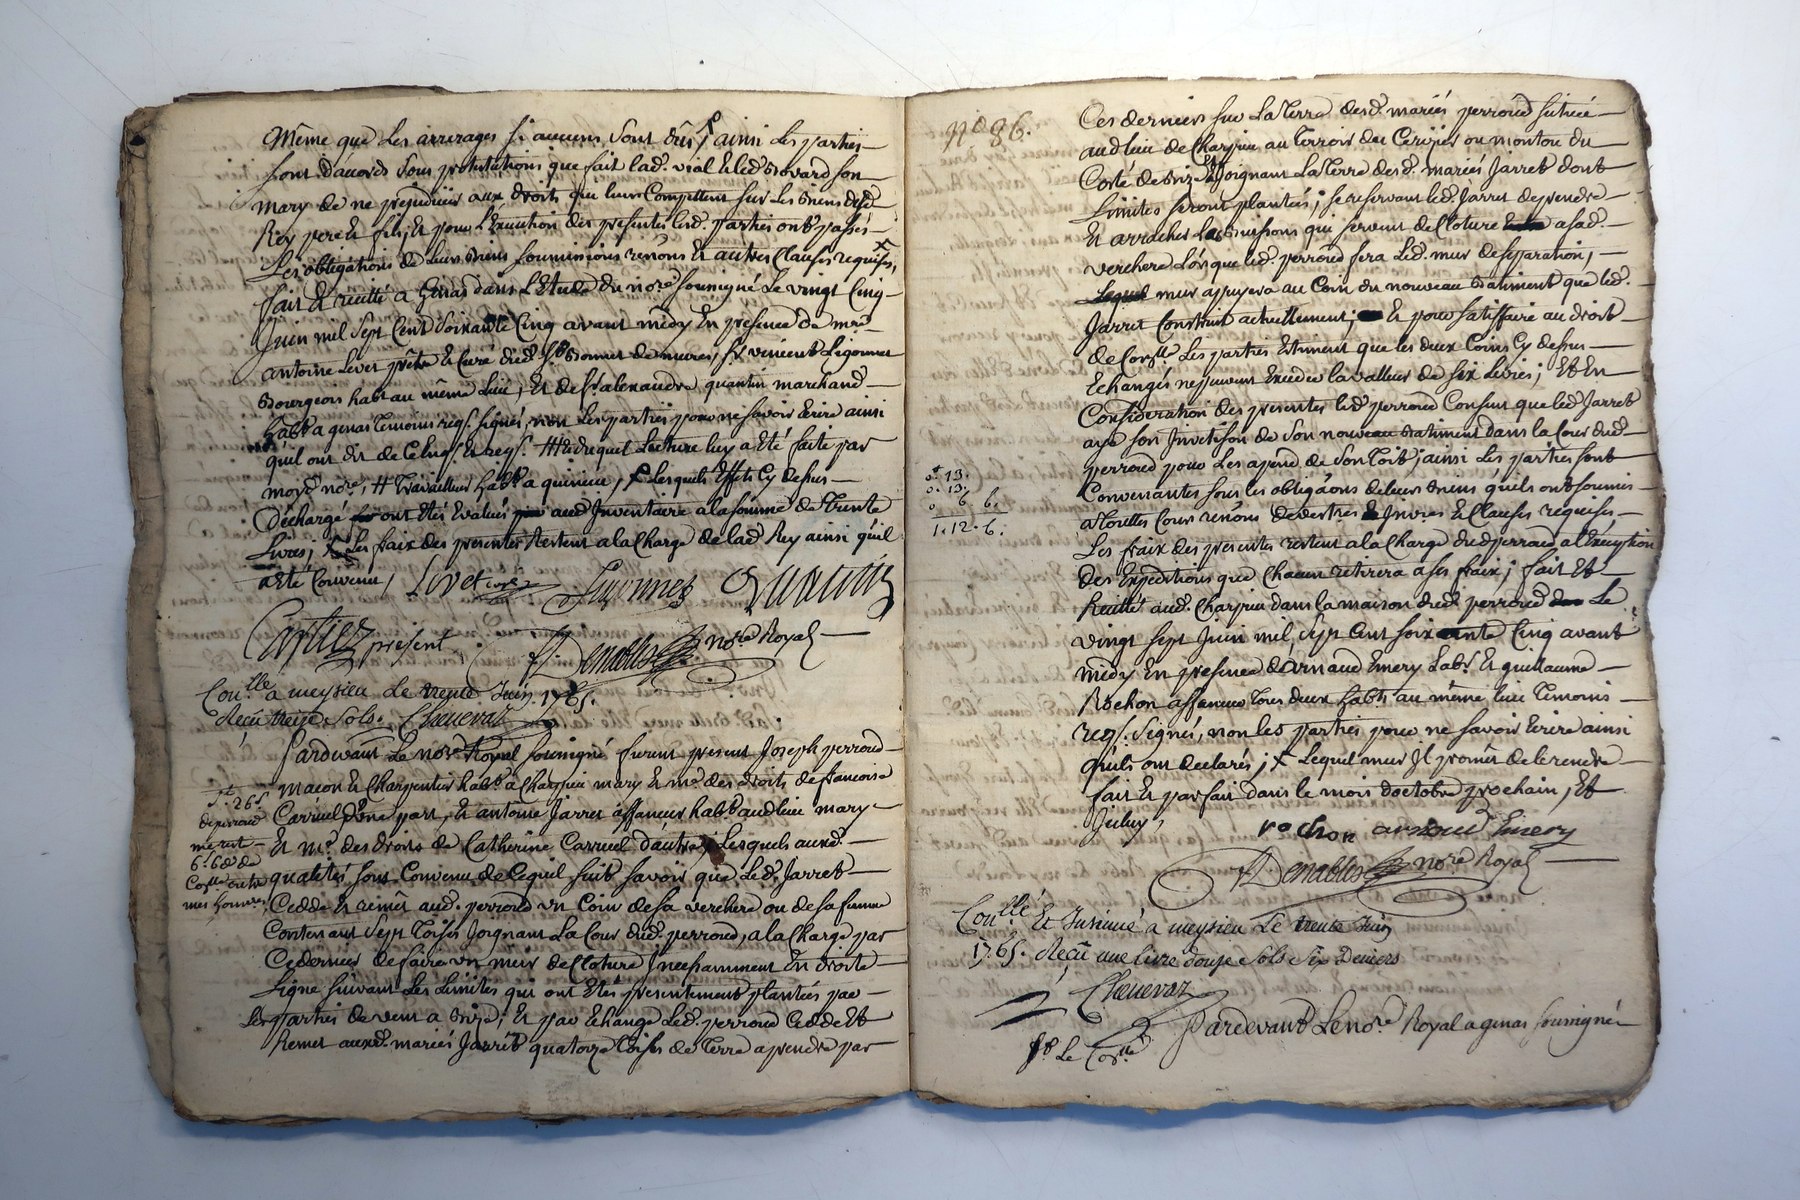 Même que les arrerages si aucuns sont dûs, ainsi les parties
sont d'accords sous protestations que fait lad. vial et led. Bovard son
mary de ne prejudicier aux droits qui leurs competent sur les Biens desd.
Rey pere et fils, Et pour l'Execution des presentes lesd. parties ont passés
Les obligations de leurs Biens soumissions renons et autres Clauses requises,
fait et recitté a Genas dans l'Etude du nore soussigné Le vingt Cinq
Juin mil sept Cent soixante Cinq avant midy En presence de mre
antoine Livet prêtre et Curé dud. St Bonnet de mures, Sr vincent Ligonnet
Bourgeois habt au même Lieu, Et de Sr alexandre quantin marchand
habt a genas temoins req. signés, non Les parties pour ne savoir Ecrire ainsi
quil ont dit de Ce enq. et req. # Et duquel Lecture luy a eté faite par
moyd. nore, # travailleur habt a quinieu, x Lesquels Effets Cy dessus
déchargé ont etés evalués aud. Inventaire a la somme de trente
Livres; x Les fraix des presentes restent a la Charge de lad. Rey ainsi quil
a eté Convenu,
Livet curé Ligonnet Quantin
Cartier présent
Denables nore Royal
Conllé a meysieu Le trente Juin 1765.
Reçu treize sols. Chenevaz
Pardevant Le nore Royal soussigné furent present Joseph perroud
macon et Charpentier habt a Charpieu mary et me des droits de francoise
Carruel d'une part, et antoine Jarret affaneur habt aud. lieu mary
Et me des droits de Catherine Carruel d'autre; Lesquels auxd.
qualités sont Convenu de Cequil suit savoir que Led. Jarret
Cedde Et remet aud. perroud un Coin de sa verchere ou de sa femme
Contenant sept toises Joignant La Cour dud. perroud, a la Charge par
Ce dernier de faire un mur de Cloture Incessamment En droite
Ligne suivant Les Limites qui ont etés presentement plantées par
Les parties de vent a Bize; Et par Echange Led. perroud Cedde Et
Remet auxd. mariés Jarret quatorze toises de terre a prendre par
26s
de perroud
me rest
6s 6d de
Conlle outre
mes honnres
No 86.
Ces derniers sur La terre desd. mariés perroud scituée
aud. lieu de Charpieu au terroir du Cerizier ou monton du
Coté de Bize et Joignant La terre desd. mariés Jarret dont
Limites seront plantées; se reservant led. Jarret de prendre
Et arracher les Buissons qui servent de Cloture a sad.
verchere Lorsque led. perroud fera Led. mur de separation,
mur appuyera au Coin du nouveau Batiment que led.
Jarret Construit actuellement; Et pour satisfaire au droit
de Conlle Les parties Estiment que les deux Coins Cy dessus
Echangés ne peuvent Exceder la valleur de six Livres; Et En
Consideration des presentes led. perroud Consent que led. Jarret
aye son Investison de son nouveau Batiment dans la Cour dud.
perroud pour Les apend. de son toit; ainsi Les parties sont
Convenantes sous les obligaons de leurs Biens quils ont soumis
a toutes Cours renons de dertres Invies et Clauses requises
Les fraix des presentes restent a la Charge dud. perroud a l'Exception
des Expeditions que Chacun retirera a ses fraix; fait Et
Recitté aud. Charpieu dans la maison dud. perroud Le
vingt sept Juin mil sept Cent soixante Cinq avant
midy En presence d'Arnaud Emery Labr. Et guillaume
Rochon affaneur tous deux habts au même lieu temoins
req. signés, non les parties pour ne savoir Ecrire ainsi
quils ont declarés, x Lequel mur Il promet de le rendre
fait et parfait dans le mois d'octobre prochain, Et
Juilly,
0. 13.
0. 13.
0. 6. 6.
1. 12. 6.
rochon arnoud Emery
Denables nore Royal
Conllé Et Insinué a meysieu Le trente Juin
1765. Reçu une Livre douze sols six Deniers
Chenevaz
Pardevant Le nore Royal a genas soussigné
pr Le Conlle